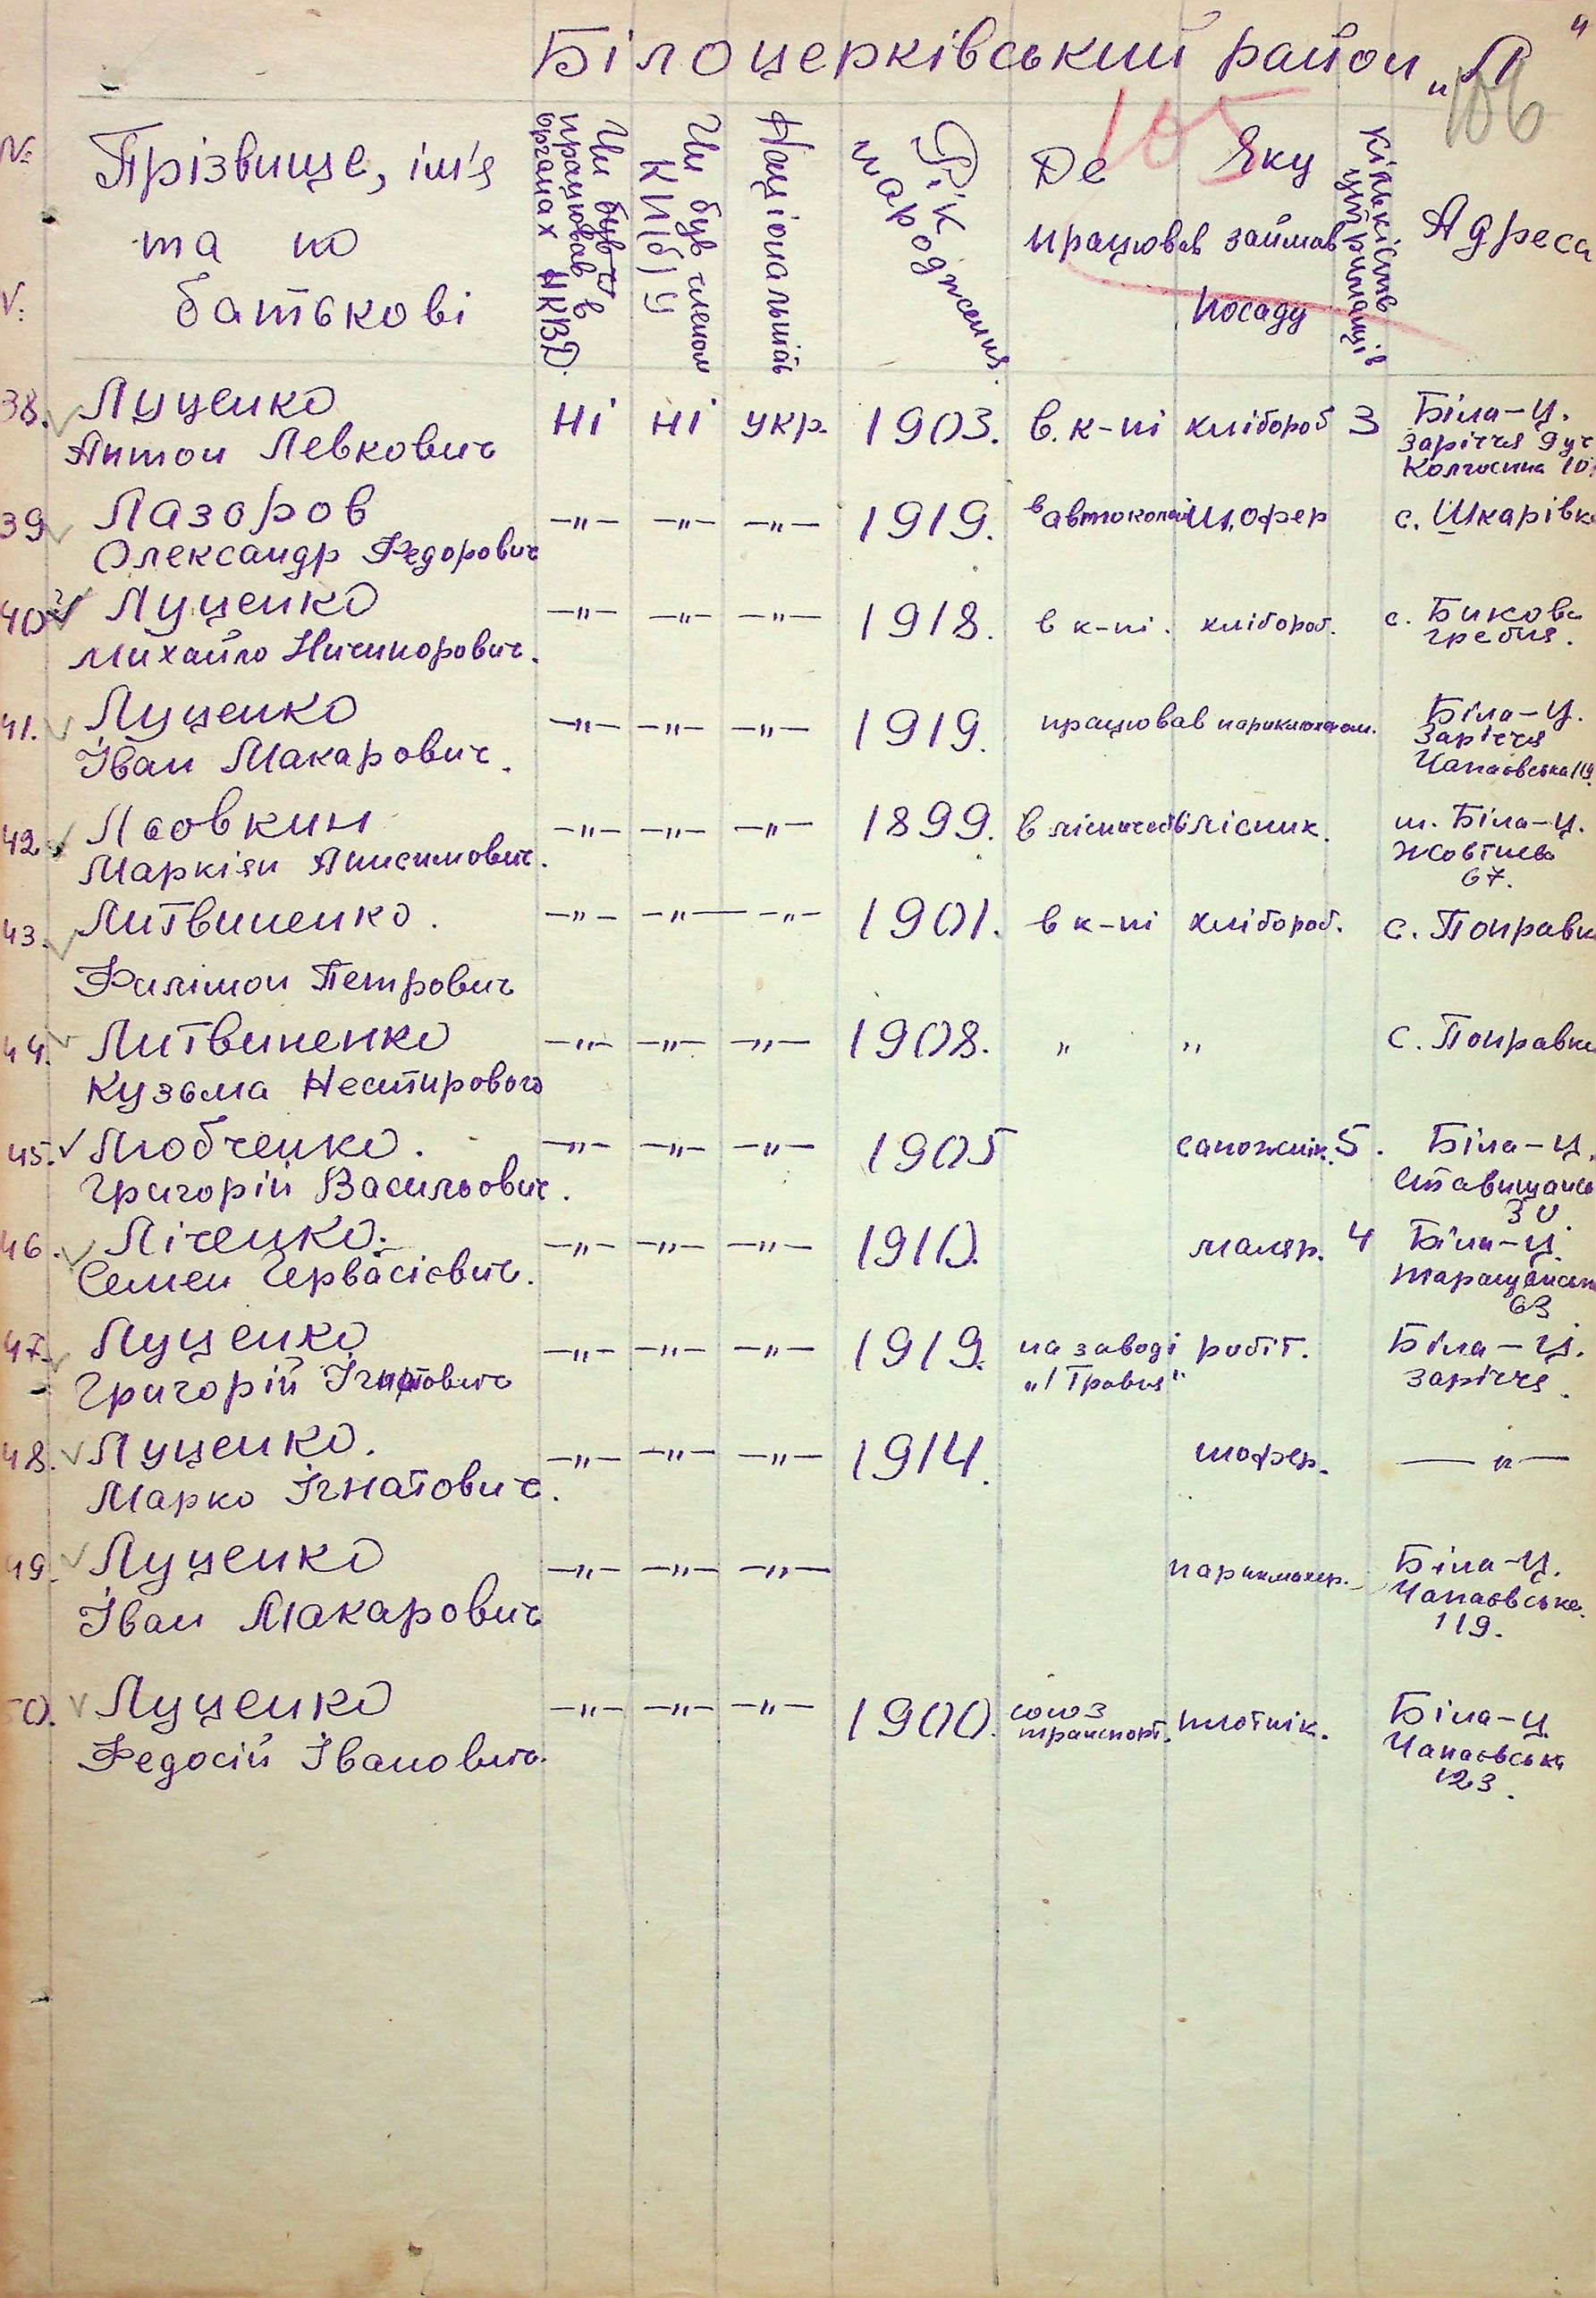 Білоцерківський район „Л"
105 106
№ Прізвище, ім'я та по батькові Чи був чи працював в органах НКВД. Чи був членом КП(б)У Національність Рік народження. Де працював Яку займав посаду Кількість утриманців Адреса
38. Луценко ні ні укр. 1903. в. к-пі хлібороб 3 Біла-Ц.
Антон Левкович Заріччя
Колгоспна
39 Лазоров —"— —"— —"— 1919. в шофер с. Шкарівк
Олександр Федорович
40 Луценко —"— —"— —"— 1918. в к-пі. хлібороб. с. Бикова
Михайло Ничипорович. гребля.
41. Луценко —"— —"— —"— 1919. працював парикмахером. Біла-Ц.
Іван Макарович. Заріччя
Чапаєвська 119.
42. Льовкин —"— —"— —"— 1899. в лісник. м. Біла-Ц.
Маркіян Анисимович. Жовтнева
67.
43. Литвиненко. —"— —"— —"— 1901. в к-пі хлібороб. с. Поправк
Филімон Петрович
44. Литвиненко —"— —"— —"— 1908. " " с. Поправки
Кузьма
45. Любченко. —"— —"— —"— 1905 сапожнік. 5. Біла-Ц.
Григорій Васильович. Ставищансь
30.
46. Ліченко. —"— —"— —"— 1910. маляр. 4 Біла-Ц.
Семен Гервасієвич. Таращанськ
63
47. Луценко —"— —"— —"— 1919. на заводі робіт. Біла-Ц.
Григорій Ігнатович „1 Травня" Заріччя.
48. Луценко. —"— —"— —"— 1914. шофер. —"—
Марко Ігнатович.
49. Луценко —"— —"— —"— парикмахер. Біла-Ц.
Іван Макарович Чапаєвська.
119.
50. Луценко —"— —"— —"— 1900. союз плотнік. Біла-Ц
Федосій Іванович. транспорт. Чапаєвська
123.